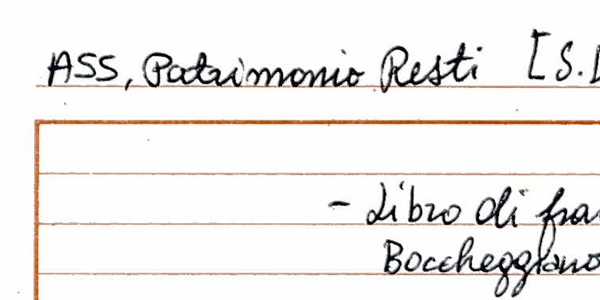 ASS, Patrimonio Resti [S.
- Libro di fra
Boccheggiano